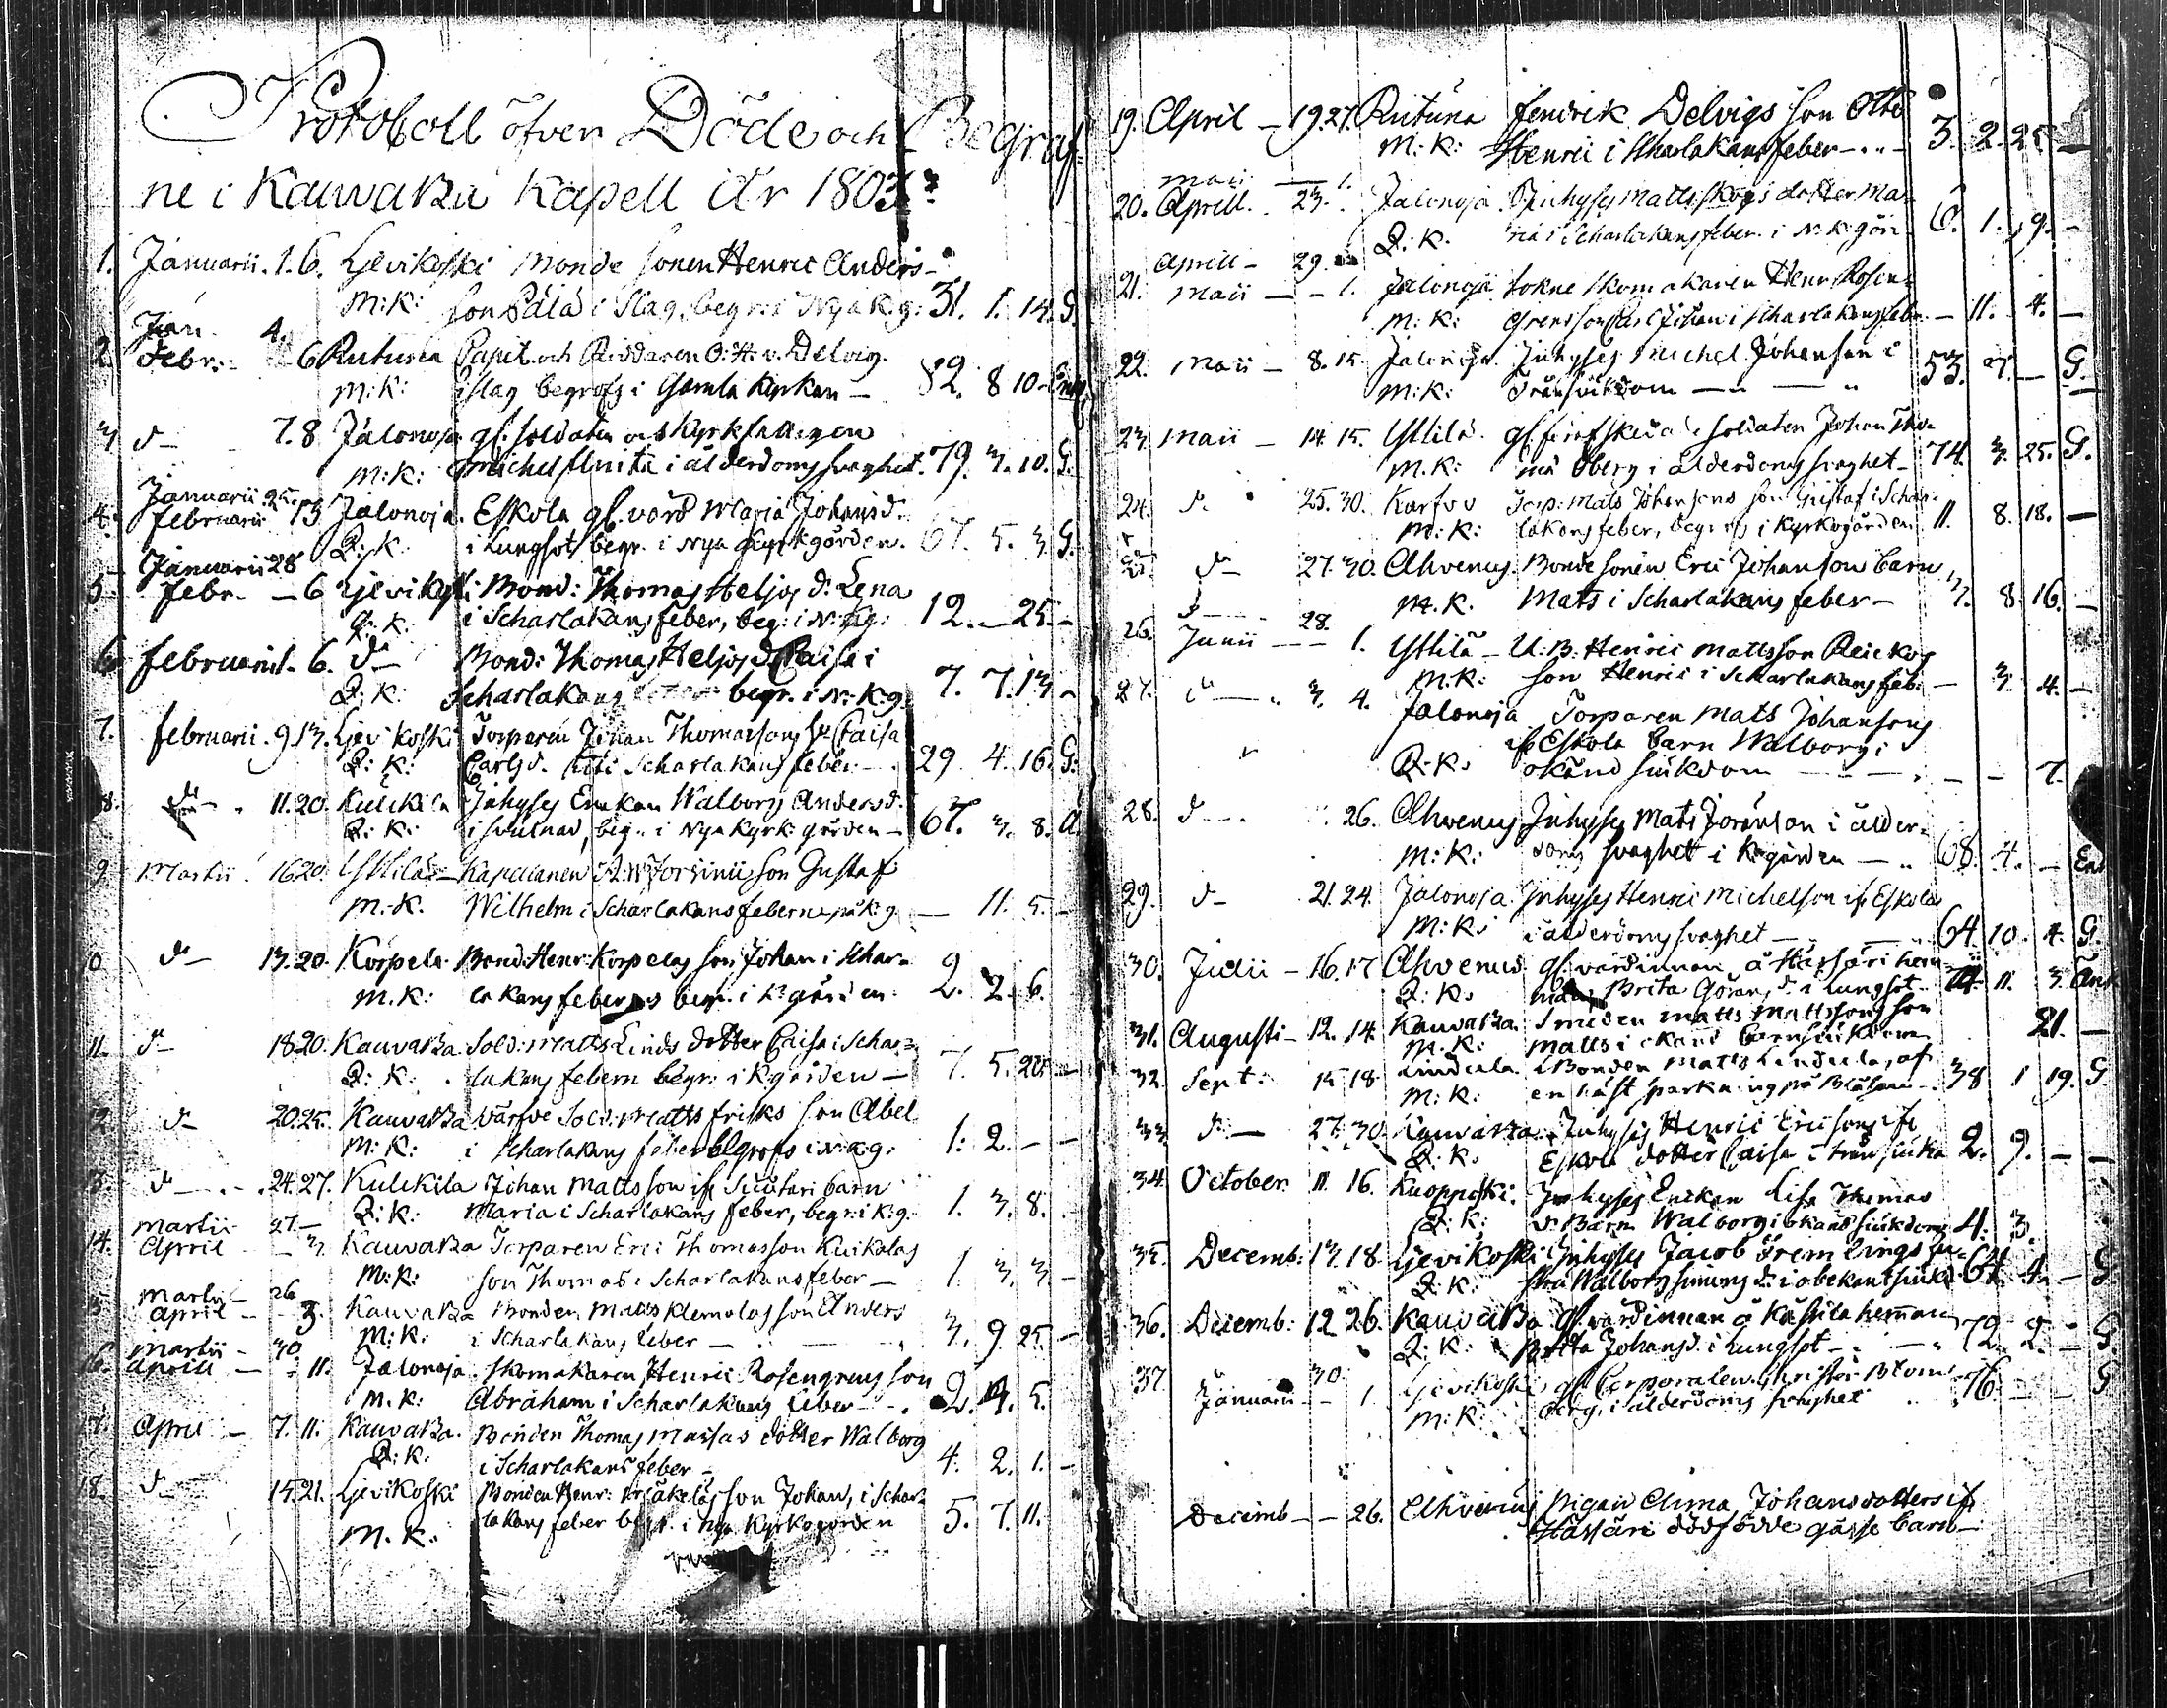 Protokoll öfver Döde och Begraf-
ne i Kauvatza Kapell År 1803
1. Januarii. 1. 6. Ljevikoski Bonde sonen Henric Anders-
M:K: son i Slag, begr: i Nya K:g: 31. 1. 14. G.
Jan. 4.
2. Febr: 6 Rutuna Capit. och Riddaren O: H: v. Delvig
M:K: i Slag begrofs i Gamla Kyrkan — 82. 8 10.
3 d— 7. 8 Jalonoja gl. soldaten och Kyrk
M:K: Michel i ålderdoms svaghet. 79. 3. 10. G.
Januarii 25.
4. Februarii 13 Jalonoja. Eskola gl. värd Maria Johansd.
Q:K: i Lungsot, begr. i Nya Kyrkgården. 67. 5. 3. G.
Januarii 28
5 Febr. — 6 Ljevikoski Bond: Thomas Heljos d: Lena
Q:K: i Scharlakans feber, beg: i N:K:g: 12. — 25. –
6. Februarii 1. 6. d— Bond: Thomas Heljos d. Caisa i
Q:K: Scharlakans begr. i N:K:g: 7. 7. 13. –
7. Februarii. 9 13. Ljevikoski Torparen Johan Thomassons Caisa
Q:K: Carlsd. i Scharlakans feber. 29. 4. 16. G.
8. d— 11. 20. Kulckila Inhyses Enckan Walborg Andersd.
Q:K: i svulnad, begr. i Nya Kyrk: gården — 67. 3. 8.
9 Martii 16 20. Yttilä — Kapellanen Forsinii son Gustaf
M:K: Wilhelm i Scharlakans febern, på K:g — 11. 5. –
10 d— 13. 20. Korpela Bond: Henr: Korpelas son Johan i Schar-
M.K: lakans feber begr. i K:gården. 2. 2. 6.
11. d— 18 20. Kauvatza Sold: Matts Linds dotter Caisa i Schar-
Q:K: lakans febern begr: i K:gården — 7. 5. 20. –
d— 20. 25. Kauvatza värfve Sold: Matts Frisks son Abel
M:K: i Scharlakans feber begrofs i N:K:g: 1. 2. – –
d— 24. 27. Kulckila Johan Mattsson if barn
Q:K: Maria i Scharlakans feber, begr: i K:g. 1. 3. 8.
Martii 27. —
14. April — 3 Kauvatza Torparen Eric Thomasson Kuikolas
M:K: son Thomas i Scharlakans feber — 1. 3. 3 –
Martii — 26
April — 3. Kauvatza Bonden Matts Klemolas son Anders
M:K: i Scharlakans feber — 3. 9. 25. –
Martii — 30
16. Aprill — 11. Jalonoja. Skomakaren Henric Rosengrens son
M.K: Abraham i Scharlakans feber 2. 4. 5.
17. April — 7. 11. Kauvatza. Bonden Thomas Massas dotter Walborg
Q:K: i Scharlakans feber — 4. 2. 1. –
18. d— 15 21. Ljevikoski Bonden Henr: son Johan, i Schar-
M.K: lakans feber begr. i nya Kyrkogården 5. 7. 11.
19. April — 19. 27. Rutuna Fendrik Delvigs son Otto
M:K: Henric i Scharlakans feber — 3. 2. 25 —
Maii — 1.
20. Aprill. 23. Jalonoja. Inhyses Matts dotter Ma-
Q:K. ria i Scharlakans feber. i N:K:går. 6. 1. 9. –
Aprill — 29.
21. Maii — 1. Jalonoja sokne skomakaren Henr: Rosen-
M:K: grens son Carl Johan i Scharlakans feber — 11. 4. –
22. Maii — 8. 15. Jalonoja Inhyses Michel Johanson i
M:K: Trånsiukdom — 53. 7. — G.
23. Maii — 14. 15. Yttilä. gl. afskeda soldaten Johan Tho-
M.K: mä Öberg i ålderdoms svaghet — 74. 3. 25. G.
24. d. 25. 30. Karhu Torp: Mats Johansons son Gustaf i Schar-
M:K: lakans feber, begrofs i Kyrkogården 11. 8. 18. –
25. d— 27. 30. Ahvenus Bonde sonen Eric Johanson barn
M.K. Mats i Scharlakans feber — 3. 8. 16. –
d— 28.
26. Junii — 1. Yttilä — U. B: Henric Mattsson
M.K: son Henric i Scharlakans feb: — 3. 4. –
27. d— 3. 4. Jalonoja Torparen Mats Johansons
if Eskola barn Walborg i
Q:K: okänd siukdom — — 7.
28. d— 26. Ahvenus Inhyses Mats Joranson i ålder-
M:K: doms svaghet i K:gården — 68. 4. —
29. d— 21. 24. Jalonoja Inhyses Henric Michelson if Eskola
M:K: i ålderdoms svaghet — 64 10. 4. G.
30. Julii — 16. 17 Ahvenus gl. värdinnan å Hassari hem-
Q:K. Brita Görans d. i Lungsot 11. 3. Änk
31. Augusti — 12. 14 Kauvatza. Smeden Matts Mattssons son
M.K: Matts i okänd barnsiukdom 21. —
32. Sept: 15 18. Lindula Bonden Matts Lindula, af
M:K: en häst sparkning på Blåsan 38 1 19. G
33. d— 27. 30. Kauvatza Inhyses Henric Ericsons if
Q:K. Eskola dotter Caisa i trån siuka 2. 9. – –
34. October. 11. 16. Kuoppski. Inhyses Enckan Lisa Thomas
Q:K: d. Barn Walborg i okänd siukdom 4. 3.
35. Decemb: 13. 18. Ljevikoski Inhyses Jacob Fremlings hu-
Q:K. stru Walborg Simons d. i obekant siukd. 64. 4. — G
36. Decemb: 12 26. Kauvatza gl. värdinnan å Käskila hemman
Q:K: Brita Johansd. i Lungsot — 72. 2. — G
37. 30.
Januarii — 1 Ljevikoski gl. Corporalen Christer Blom-
M:K: berg, i ålderdoms svaghet 76. — G
Decemb — — 26. Ahvenus Pigan Anna Johansdotters if
Hassari dödfödde gåsse barn —